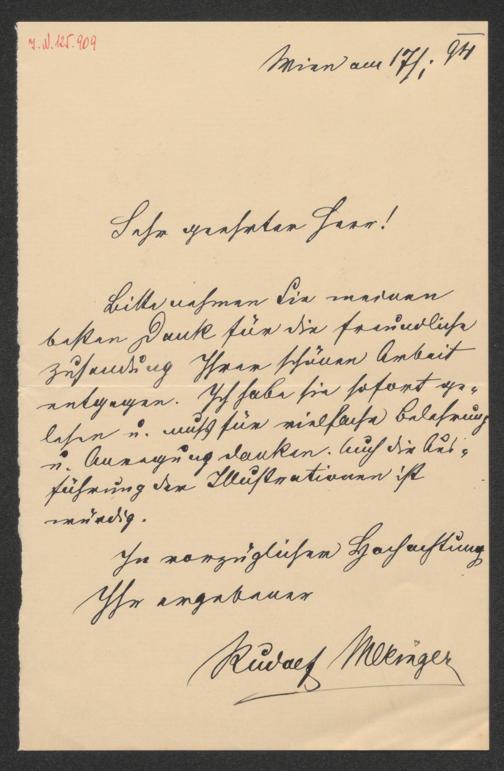 J. N. 125.909
Wien am 17/1. 94
Sehr geehrter Herr!
Bitte nehmen Sie meinen
besten Dank für die freundliche
Zusendung Ihrer schönen Arbeit
entgegen. Ich habe sie sofort ge-
lesen u. muß für vielfache Belehrung
u. Anregung danken. Auch die Aus-
führung der Illustrationen ist
würdig.
In vorzüglicher Hochachtung
Ihr ergebener
Rudolf Meringer